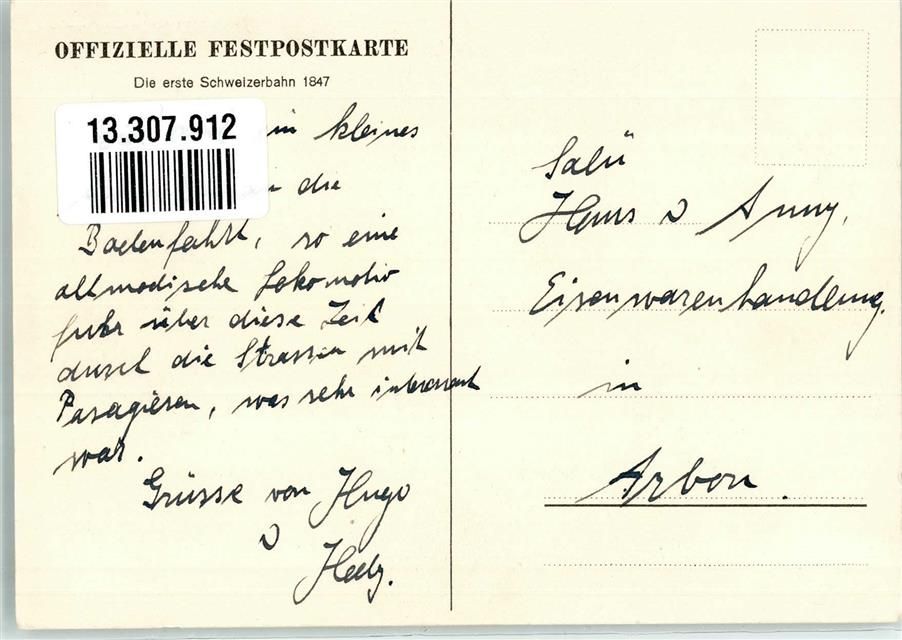 OFFIZIELLE FESTPOSTKARTE
Die erste Schweizerbahn 1847
13.307.912
kleines
die
Badenfahrt, so eine
altmodische Lokomotiv
fuhr über diese Zeit
durch die Strassen mit
Pasagieren, was sehr interessant
war.
Grüsse von Hugo
u
Hedy.
Salü
Hans u Anny,
Eisenwarenhandlung,
in
Arbon.